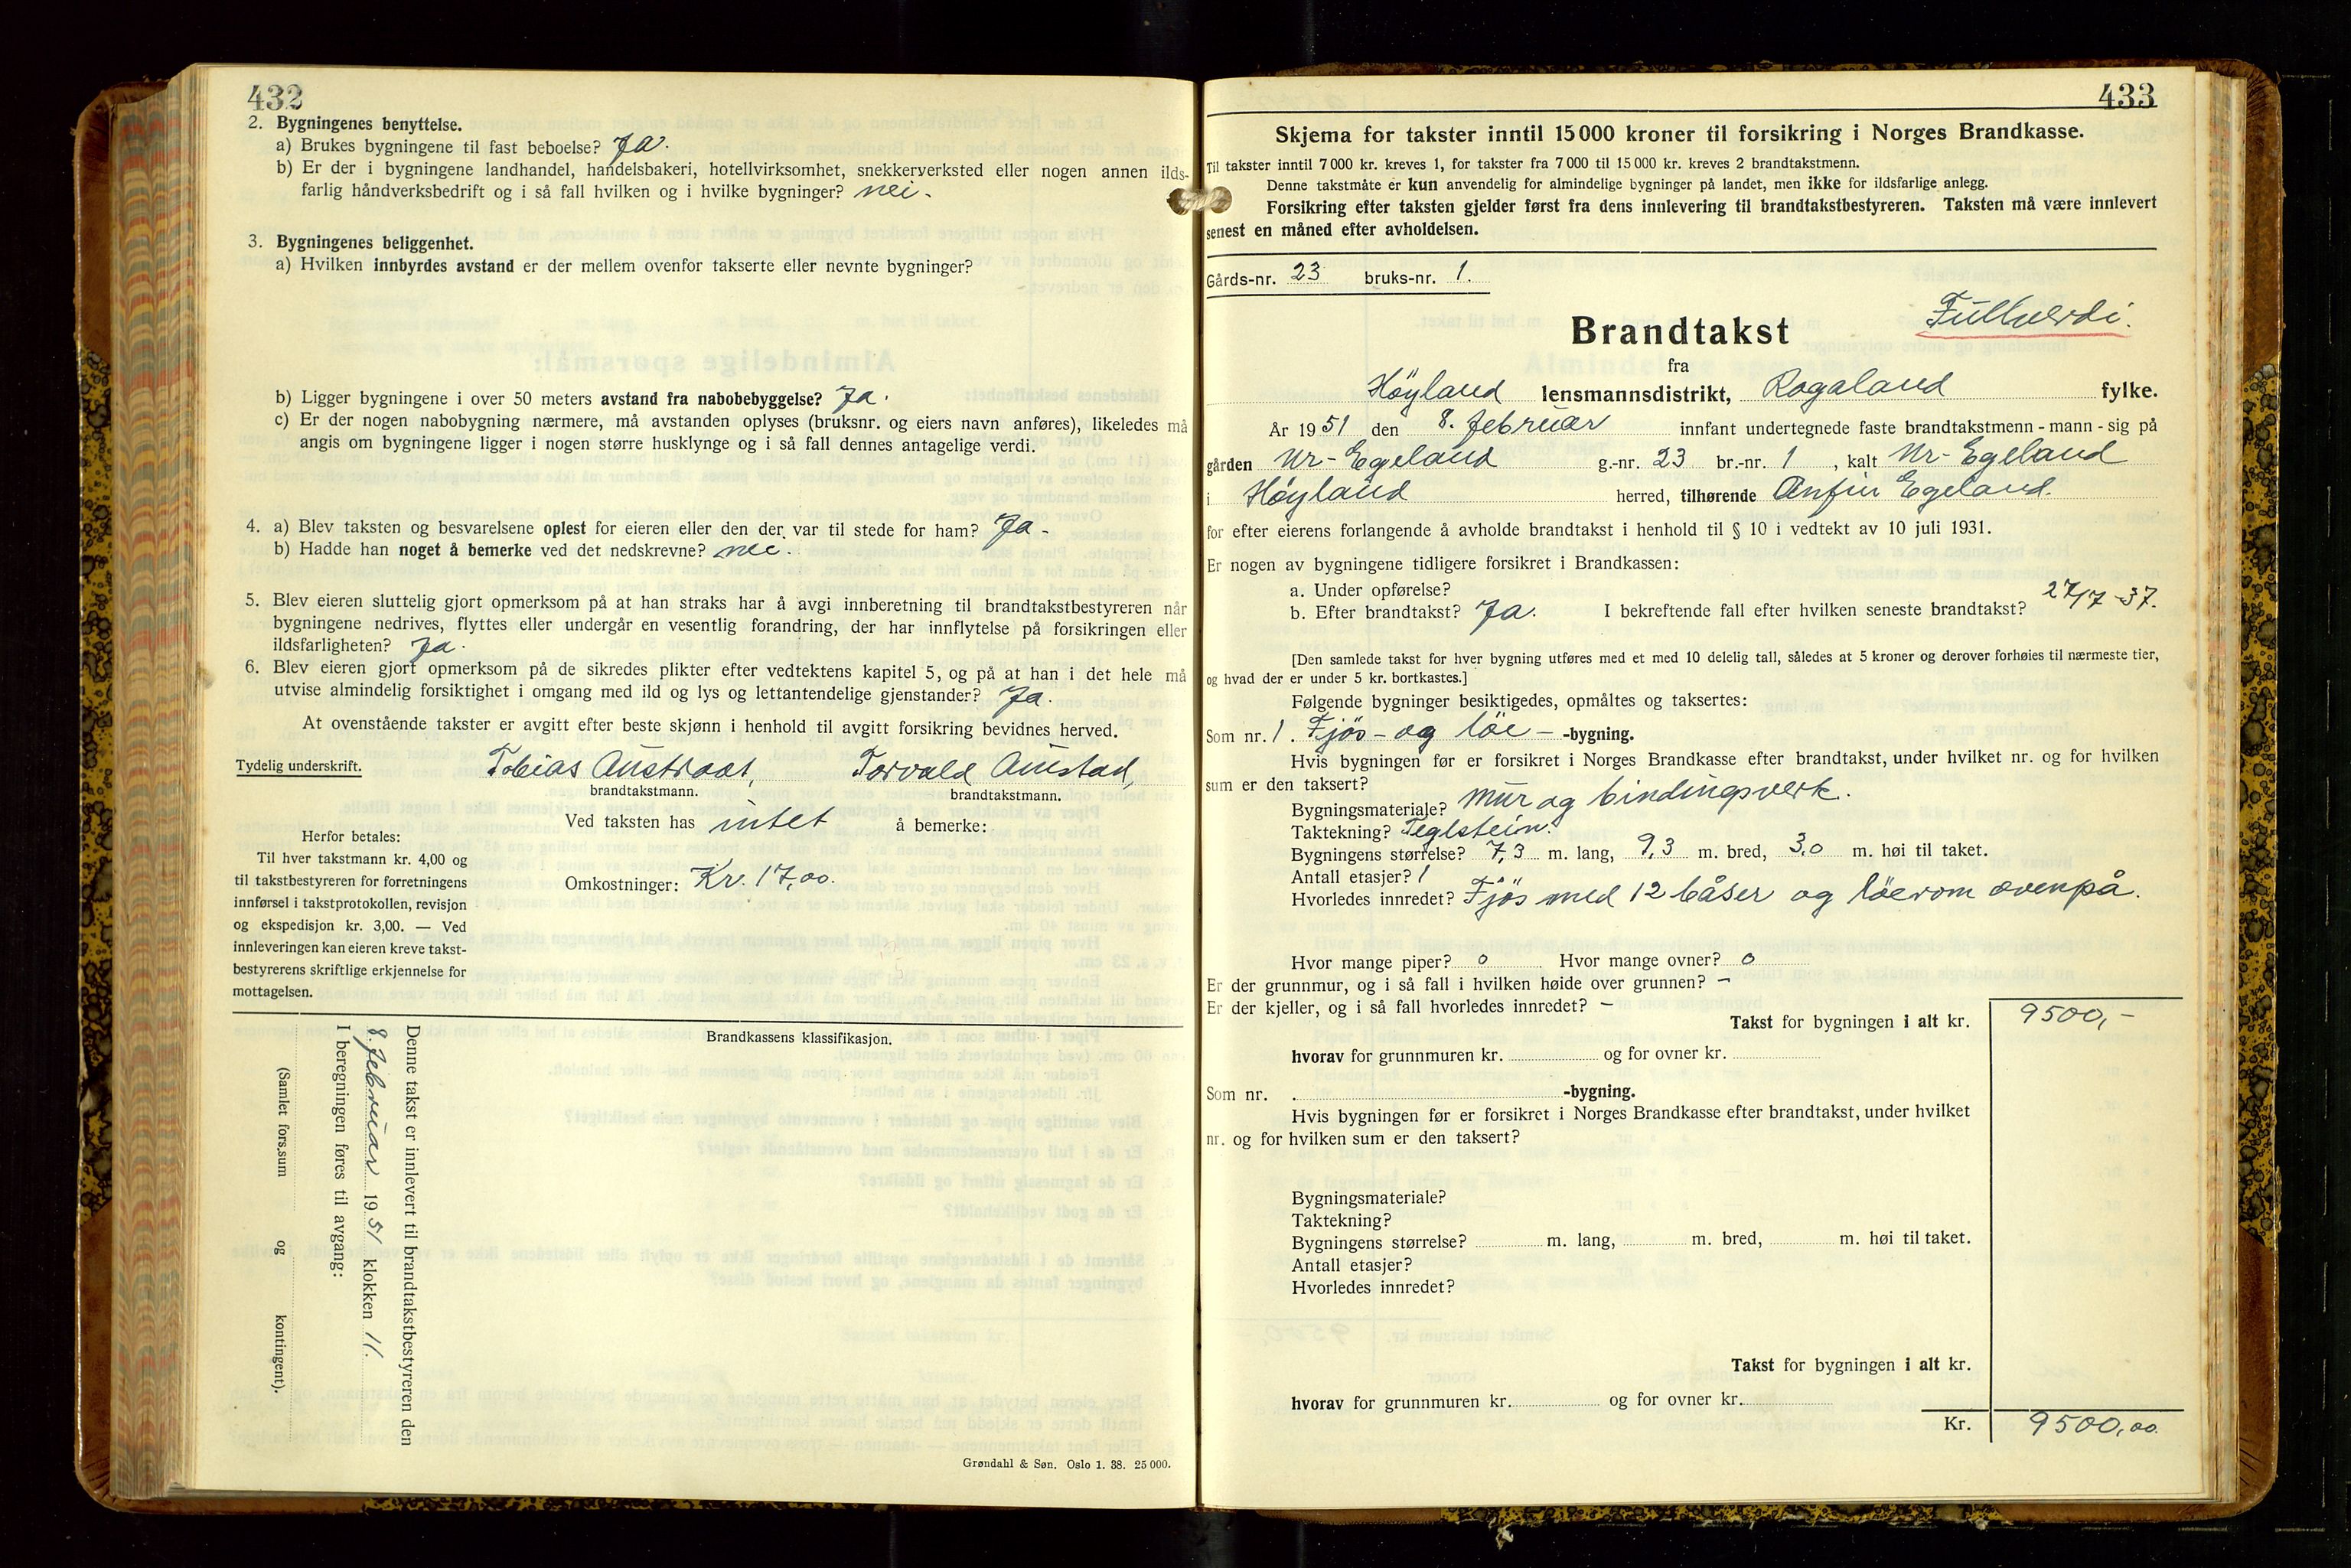 432
2. Bygningenes benyttelse.
a) Brukes bygningene til fast beboelse? Ja.
b) Er der i bygningene landhandel, handelsbakeri, hotellvirksomhet, snekkerverksted eller nogen annen ilds-
farlig håndverksbedrift og i så fall hvilken og i hvilke bygninger? nei.
3. Bygningenes beliggenhet.
a) Hvilken innbyrdes avstand er der mellem ovenfor takserte eller nevnte bygninger?
b) Ligger bygningene i over 50 meters avstand fra nabobebyggelse? Ja.
c) Er der nogen nabobygning nærmere, må avstanden oplyses (bruksnr. og eiers navn anføres), likeledes må
angis om bygningene ligger i nogen større husklynge og i så fall dennes antagelige verdi.
4. a) Blev taksten og besvarelsene oplest for eieren eller den der var til stede for ham? Ja -
b) Hadde han noget å bemerke ved det nedskrevne? nei.
5. Blev eieren sluttelig gjort opmerksom på at han straks har å avgi innberetning til brandtakstbestyreren når
bygningene nedrives, flyttes eller undergår en vesentlig forandring, der har innflytelse på forsikringen eller
ildsfarligheten? Ja.
6. Blev eieren gjort opmerksom på de sikredes plikter efter vedtektens kapitel 5, og på at han i det hele må
utvise almindelig forsiktighet i omgang med ild og lys og lettantendelige gjenstander? Ja.
At ovenstående takster er avgitt efter beste skjønn i henhold til avgitt forsikring bevidnes herved.
Tydelig underskrift. Tobias Austraat, Torvald Austad,
brandtakstmann. brandtakstmann.
Ved taksten has intet å bemerke:
Herfor betales:
Til hver takstmann kr. 4,00 og
til takstbestyreren for forretningens
innførsel i takstprotokollen, revisjon
og ekspedisjon kr. 3,00. — Ved
innleveringen kan eieren kreve takst-
bestyrerens skriftlige erkjennelse for
mottagelsen.
Omkostninger: Kr. 17,00.
Brandkassens klassifikasjon.
Denne takst er innlevert til brandtakstbestyreren den
8. februar 1951 klokken 11.
I beregningen føres til avgang:
(Samlet fors.sum og kontingent).
Grøndahl & Søn. Oslo 1. 38. 25 000.
433
Skjema for takster inntil 15 000 kroner til forsikring i Norges Brandkasse.
Til takster inntil 7 000 kr. kreves 1, for takster fra 7 000 til 15 000 kr. kreves 2 brandtakstmenn.
Denne takstmåte er kun anvendelig for almindelige bygninger på landet, men ikke for ildsfarlige anlegg.
Forsikring efter taksten gjelder først fra dens innlevering til brandtakstbestyreren. Taksten må være innlevert
senest en måned efter avholdelsen.
Gårds-nr. 23 bruks-nr. 1.
Fullverdi.
Brandtakst
fra
Höyland lensmannsdistrikt, Rogaland fylke.
År 1951 den 8. februar innfant undertegnede faste brandtakstmenn - mann - sig på
gården Nr- Egeland g.-nr. 23 br.-nr. 1, kalt Nr- Egeland
i Höyland herred, tilhørende Anfin Egeland.
for efter eierens forlangende å avholde brandtakst i henhold til § 10 i vedtekt av 10 juli 1931.
Er nogen av bygningene tidligere forsikret i Brandkassen:
a. Under opførelse?
b. Efter brandtakst? Ja. I bekreftende fall efter hvilken seneste brandtakst? 27/7-37.
[Den samlede takst for hver bygning utføres med et med 10 delelig tall, således at 5 kroner og derover forhøies til nærmeste tier,
og hvad der er under 5 kr. bortkastes.]
Følgende bygninger besiktigedes, opmåltes og taksertes:
Som nr. 1. Fjös- og löe- -bygning.
Hvis bygningen før er forsikret i Norges Brandkasse efter brandtakst, under hvilket nr. og for hvilken
sum er den taksert?
Bygningsmateriale? Mur og bindingsverk.
Taktekning? Teglstein.
Bygningens størrelse? 7,3 m. lang, 9,3 m. bred, 3,0 m. høi til taket.
Antall etasjer? 1
Hvorledes innredet? Fjös med 12 båser og löerom ovenpå.
Hvor mange piper? 0 Hvor mange ovner? 0
Er der grunnmur, og i så fall i hvilken høide over grunnen? -
Er der kjeller, og i så fall hvorledes innredet? -
Takst for bygningen i alt kr. 9500,-
hvorav for grunnmuren kr. og for ovner kr.
Som nr. -bygning.
Hvis bygningen før er forsikret i Norges Brandkasse efter brandtakst, under hvilket
nr. og for hvilken sum er den taksert?
Bygningsmateriale?
Taktekning?
Bygningens størrelse? m. lang, m. bred, m. høi til taket.
Antall etasjer?
Hvorledes innredet?
Takst for bygningen i alt kr.
hvorav for grunnmuren kr. og for ovner kr.
Kr. 9500,00.